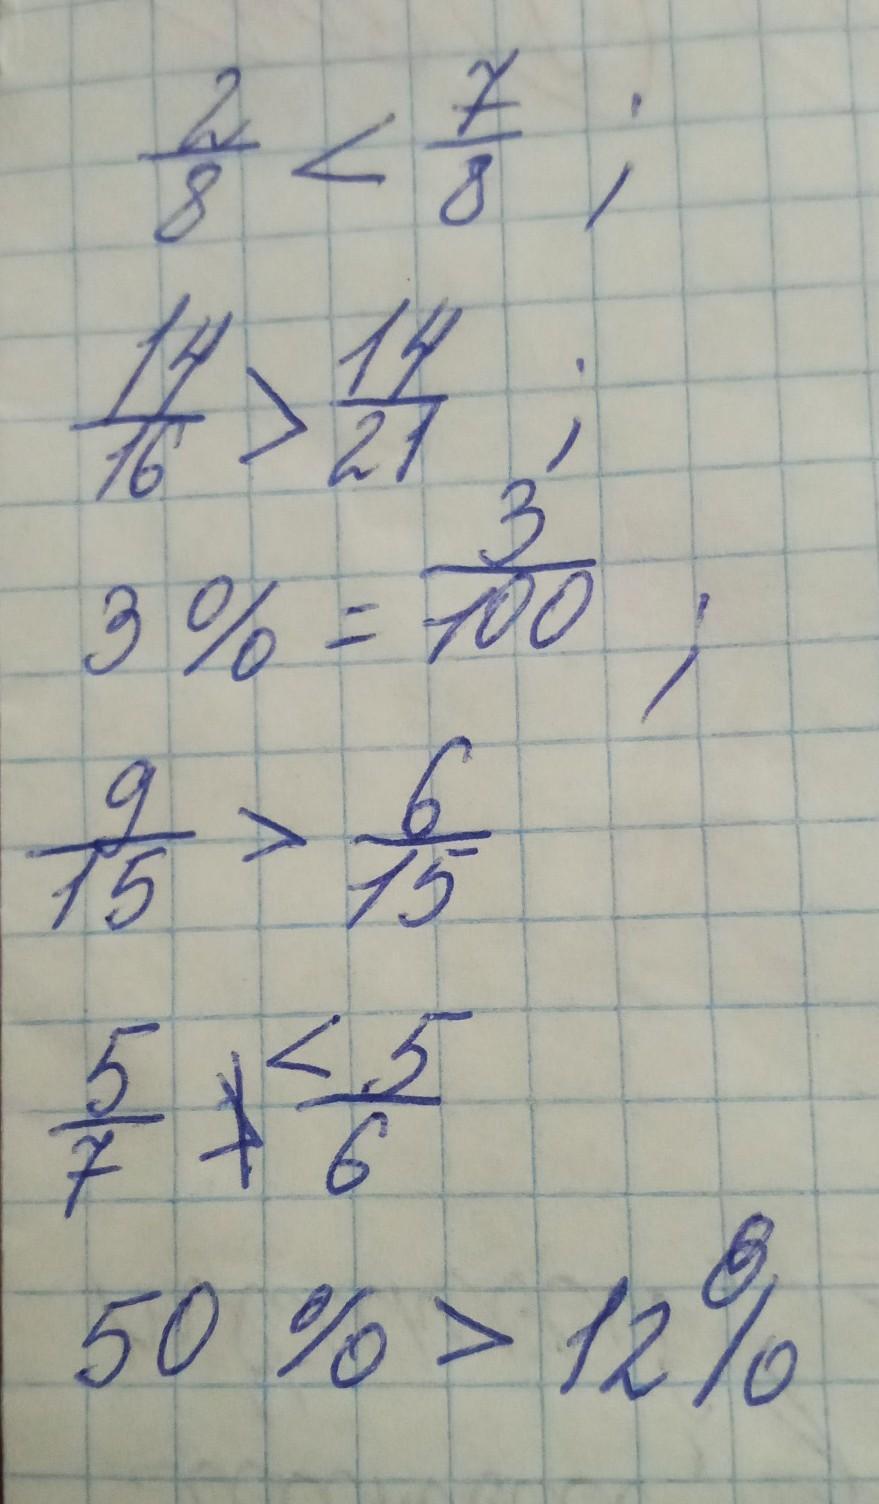 2/8 < 7/8 ;
14/16 > 14/21 ;
3 % = 3/100 ;
9/15 > 6/15
5/7 < 5/6
50 % > 12 %